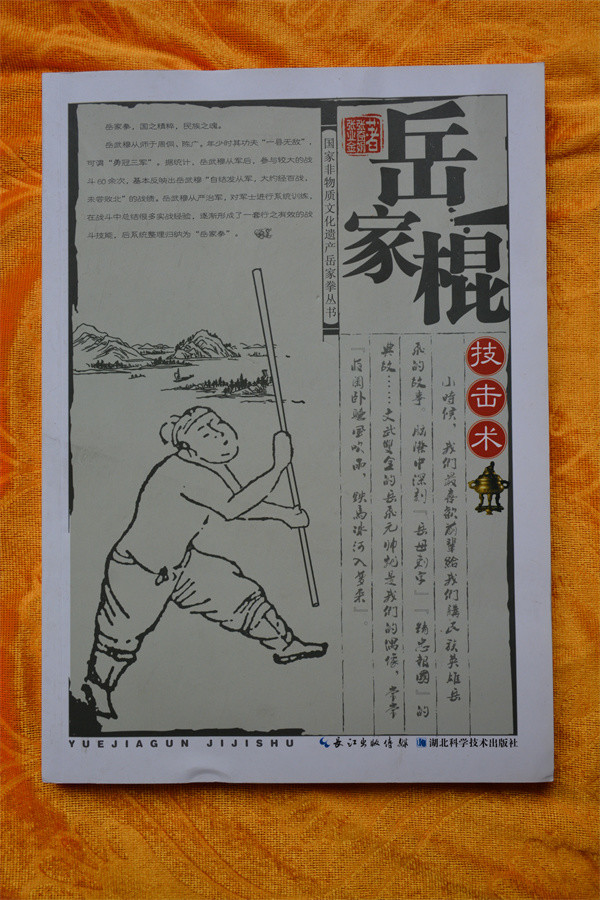 岳家拳，国之精粹，民族之魂。
岳武穆从师于周侗，陈广，年少时其功夫“一县无敌”，
可谓“勇冠三军”。据统计，岳武穆从军后，参与较大的战
斗60余次，基本反映出岳武穆“自结发从军，大约经百战，
未尝败北”的战绩。岳武穆从严治军，对军士进行系统训练，
在战斗中总结很多实战经验，逐渐形成了一套行之有效的战
斗技能，后系统整理归纳为“岳家拳”。
国家非物质文化遗产岳家拳丛书
著
岳家棍
技击术
小时候，我们最喜欢前辈给我们讲民族英雄岳
飞的故事。脑海中深刻『岳母刺字』『精忠报国』的
典故……文武双全的岳飞元帅就是我们的偶像，常常
『夜阑卧听风吹雨，铁马冰河入梦来』。
YUEJIAGUN JIJISHU
长江出版传媒
湖北科学技术出版社